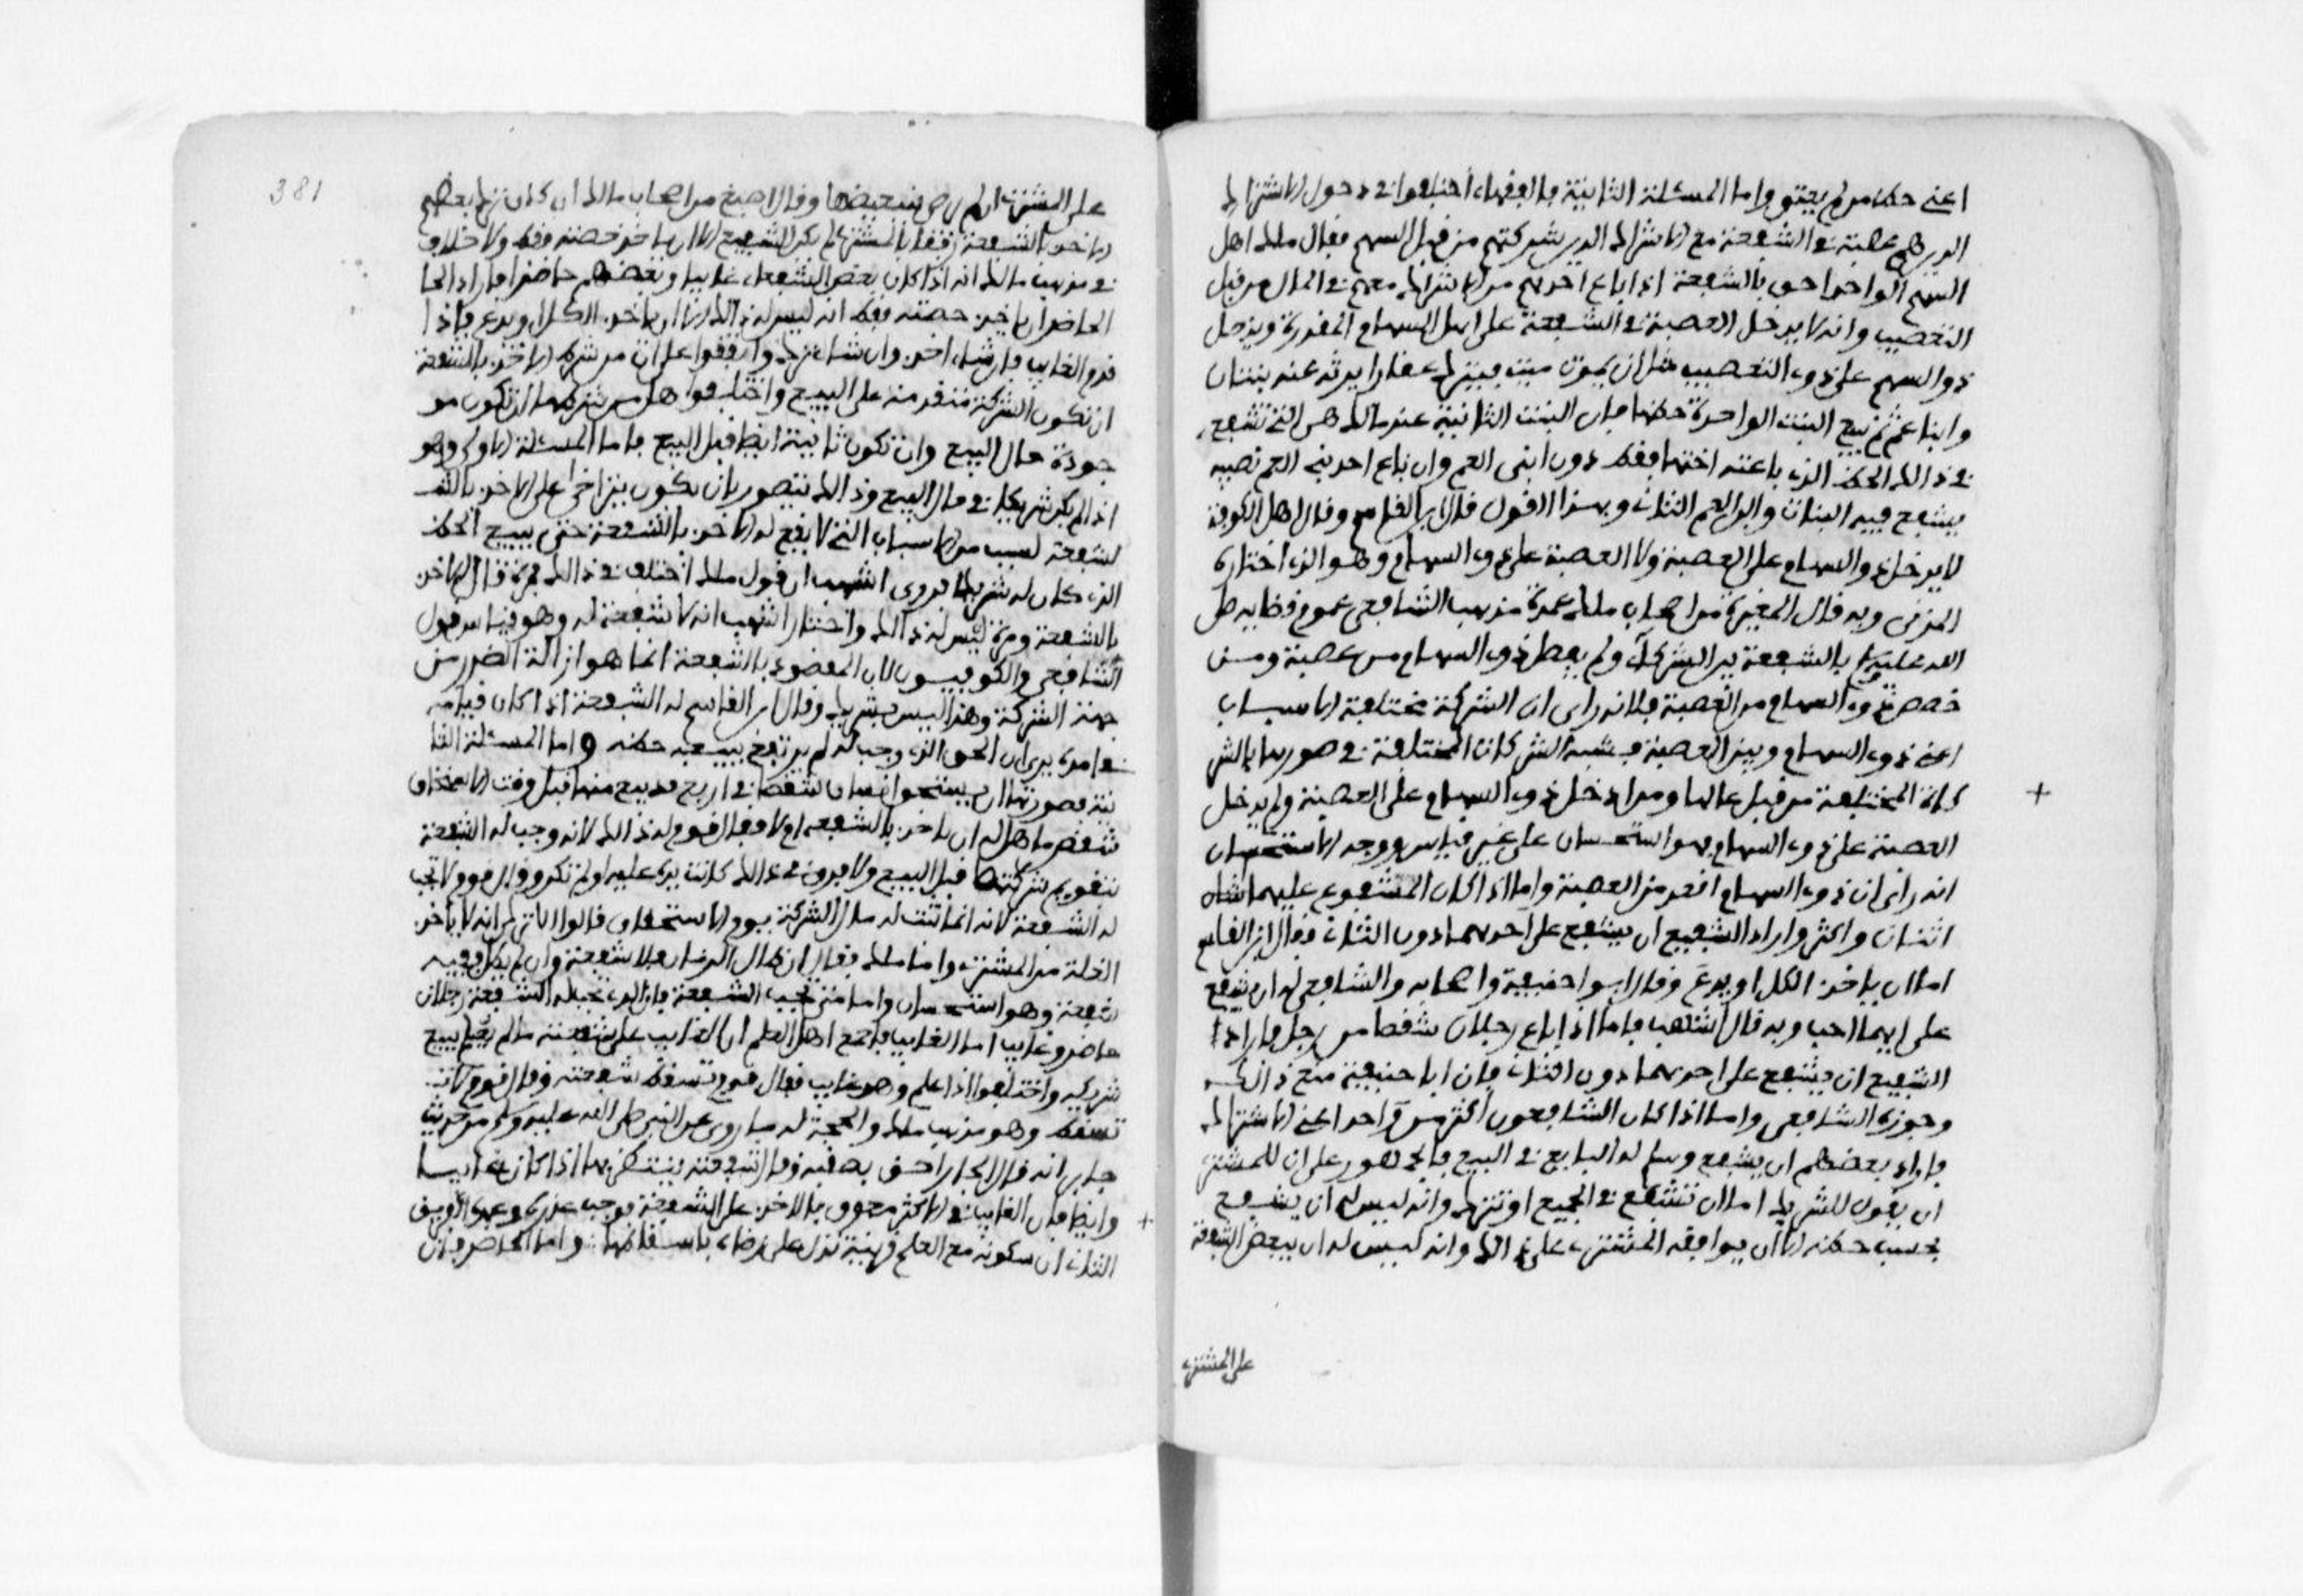 اعني حظ من لم يعتق واما المسئلة الثانية فالفقهاء اختلفوا في دخول الاشراك
الذين هم عصبة في الشفعة مع الاشراك الذين شركتهم من قبل السهم فقال ملك اهل
السهم الواحد احق بالشفعة اذا باع احدهم من الاشراك معهم في المال من قبل
التعصيب وانه لا يدخل العصبة في الشفعة على اهل السهام المقدرة ويدخل
ذوا السهم على ذوي التعصيب مثل ان يموت ميت فيترك عقارا يرثه عنه بنتان
وابنا عم ثم تبيع البنت الواحدة حظها فان البنت الثانية عند مالك هي التي تشفع
في ذلك الحظ الذي باعته اختها فقط دون ابني العم وان باع احد بني العم نصيبه
يشفع فيه البنات وابن العم الثاني وبهذا القول قال ابن القاسم وقال اهل الكوفة
لا يدخل ذوا السهام على العصبة ولا العصبة على ذوي السهام وهو الذي اختاره
المزني وبه قال المغيرة من اصحاب ملك عمدة مذهب الشافعي عموم قضايه صلى
الله عليه بالشفعة بين الشركاء ولم يفصل ذوي السهام من عصبة ومن
خصص ذوي السهام من العصبة فلانه راى ان الشركة مختلفة الاسباب
اعني ذوي السهام وبين العصبة فشبه الشركات المختلفة في صورها بالشر
كات المختلفة من قبل مالها ومن ادخل ذوي السهام على العصبة ولم يدخل
العصبة على ذوي السهام فهو استحسان على غير قياس ووجه الاستحسان
انه راى ان ذوي السهام اقعد من العصبة واما اذا كان المشفوع عليهما
اثنان واكثر واراد الشفيع ان يشفع على احدهما دون الثاني فقال ابن القاسم
اما ان ياخذ الكل او يدع وقال ابوا حنيفة واصحابه والشافعي له ان يشفع
على ايهما احب وبه قال اشهب فاما اذا باع رجلان شقصا من رجل فاراد
الشفيع ان يشفع على احدهما دون الثاني فان ابا حنيفة منع ذالك
وجوزه الشافعي واما اذا كان الشافعون اكثر من واحد اعني الاشراك
فاراد بعضهم ان يشفع وسلم له البايع في البيع فالجمهور على ان للمشتري
ان يقول للشريك اما ان تشفع في الجميع او تترك وانه ليس له ان يشفع
بحسب حظه الا ان يوافقه المشتري على ذالك وانه ليس له ان يبعض الشفعة
على المشتري
381
على المشتري ان لم يرض بتبعيضها وقال اصبغ من اصحاب مالك ان كان ترك بعضهم
الاخذ بالشفعة رفقا بالمشتري لم يكن للشفيع الا ان ياخذ حصته فقط ولا خلاف
في مذهب مالك انه اذا كان بعض الشفعاء غايبا وبعضهم حاضرا فاراد الحا
الحاضر ان ياخذ حصته فقط انه ليس له ذالك الا ان ياخذ الكل او يدع فاذا
قدم الغايب فان شاء اخذ وان شاء ترك واتفقوا على ان من شرط الاخذ بالشفعة
ان تكون الشركة متقدمة على البيع واختلفوا هل من شرطها ان تكون مو
جودة حال البيع وان تكون ثابتة ايضا قبل البيع فاما المسئلة الاولى وهو
اذا لم يكن شريكا في حال البيع وذالك يتصور بان يكون يتراخى على الاخذ بالشـ
لشفعة لسبب من الاسباب التي لا يقع له الاخذ بالشفعة حتى يبيع الحظ
الذي كان له شريكا فروى اشهب ان قول ملك اختلف في ذالك فمرة قال له الاخذ
بالشفعة ومرة ليس له ذالك واختار اشهب انه لا شفعة له وهو قياس قول
الشافعي والكوفيين لان المقصود بالشفعة انما هو ازالة الضرر من
جهة الشركة وهذا ليس بشريك وقال ابن القاسم له الشفعة اذا كان قيامه
في اثره يرى ان الحق الذي وجب له لم يرتفع ببيعه حظه واما المسئلة الثا
نية فصورتها ان يستحق انسان شقصا في ارض قد بيع منها قبل وقت الاستحقاق
شقص ما هل له ان ياخذ بالشفعة ام لا فقال قوم له ذالك لانه وجب له الشفعة
بتقويم شركتها قبل البيع ولا فرق في ذالك كانت يده عليه او لم تكن وقال قوم لا تجب
له الشفعة لانه انما ثبت له مال الشركة يوم الاستحقاق قالوا الا ترى انه لا ياخذ
الغلة من المشتري واما ملك فقال ان طال الزمان فلا شفعة وان لم يطل ففيه
شفعة وهو استحسان واما متى تجب الشفعة فان الذي تجب له الشفعة رجلان
حاضر وغايب اما الغايب فاجمع اهل العلم ان الغايب على شفعته مالم يعلم ببيع
شريكه واختلفوا اذا علم وهو غايب فقال قوم تسقط شفعته وقال قوم لا
تسقط وهو مذهب ملك والحجة له ما روي عن النبي صلى الله عليه وسلم من حديث
جابر انه قال الجار احق بصقبه وقال شفعته ينتظر بها اذا كان غايبا
وايضا فان الغايب في الاكثر معوق بالاخذ على الشفعة فوجب عذره وعمدة الفريق
الثاني ان سكوته مع العلم قرينة تدل على رضاء باسقاطها واما الحاضر فان